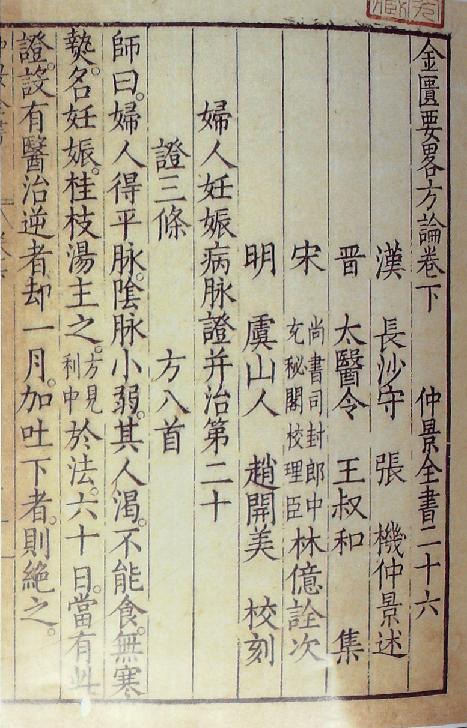 金匱要畧方論卷下 仲景全書二十六
漢 長沙守 張 機仲景述
晋 太醫令 王叔和 集
宋 尚書司封郎中充秘閣校理臣 林億詮次
明 虞山人 趙開美 校刻
婦人妊娠病脉證并治第二十
證三條 方八首
師曰。婦人得平脉。陰脉小弱。其人渴。不能食。無寒
𤍠。名妊娠。桂枝湯主之。方見利中於法。六十日。當有此
證。設有醫治逆者却一月。加吐下者。則絕之。